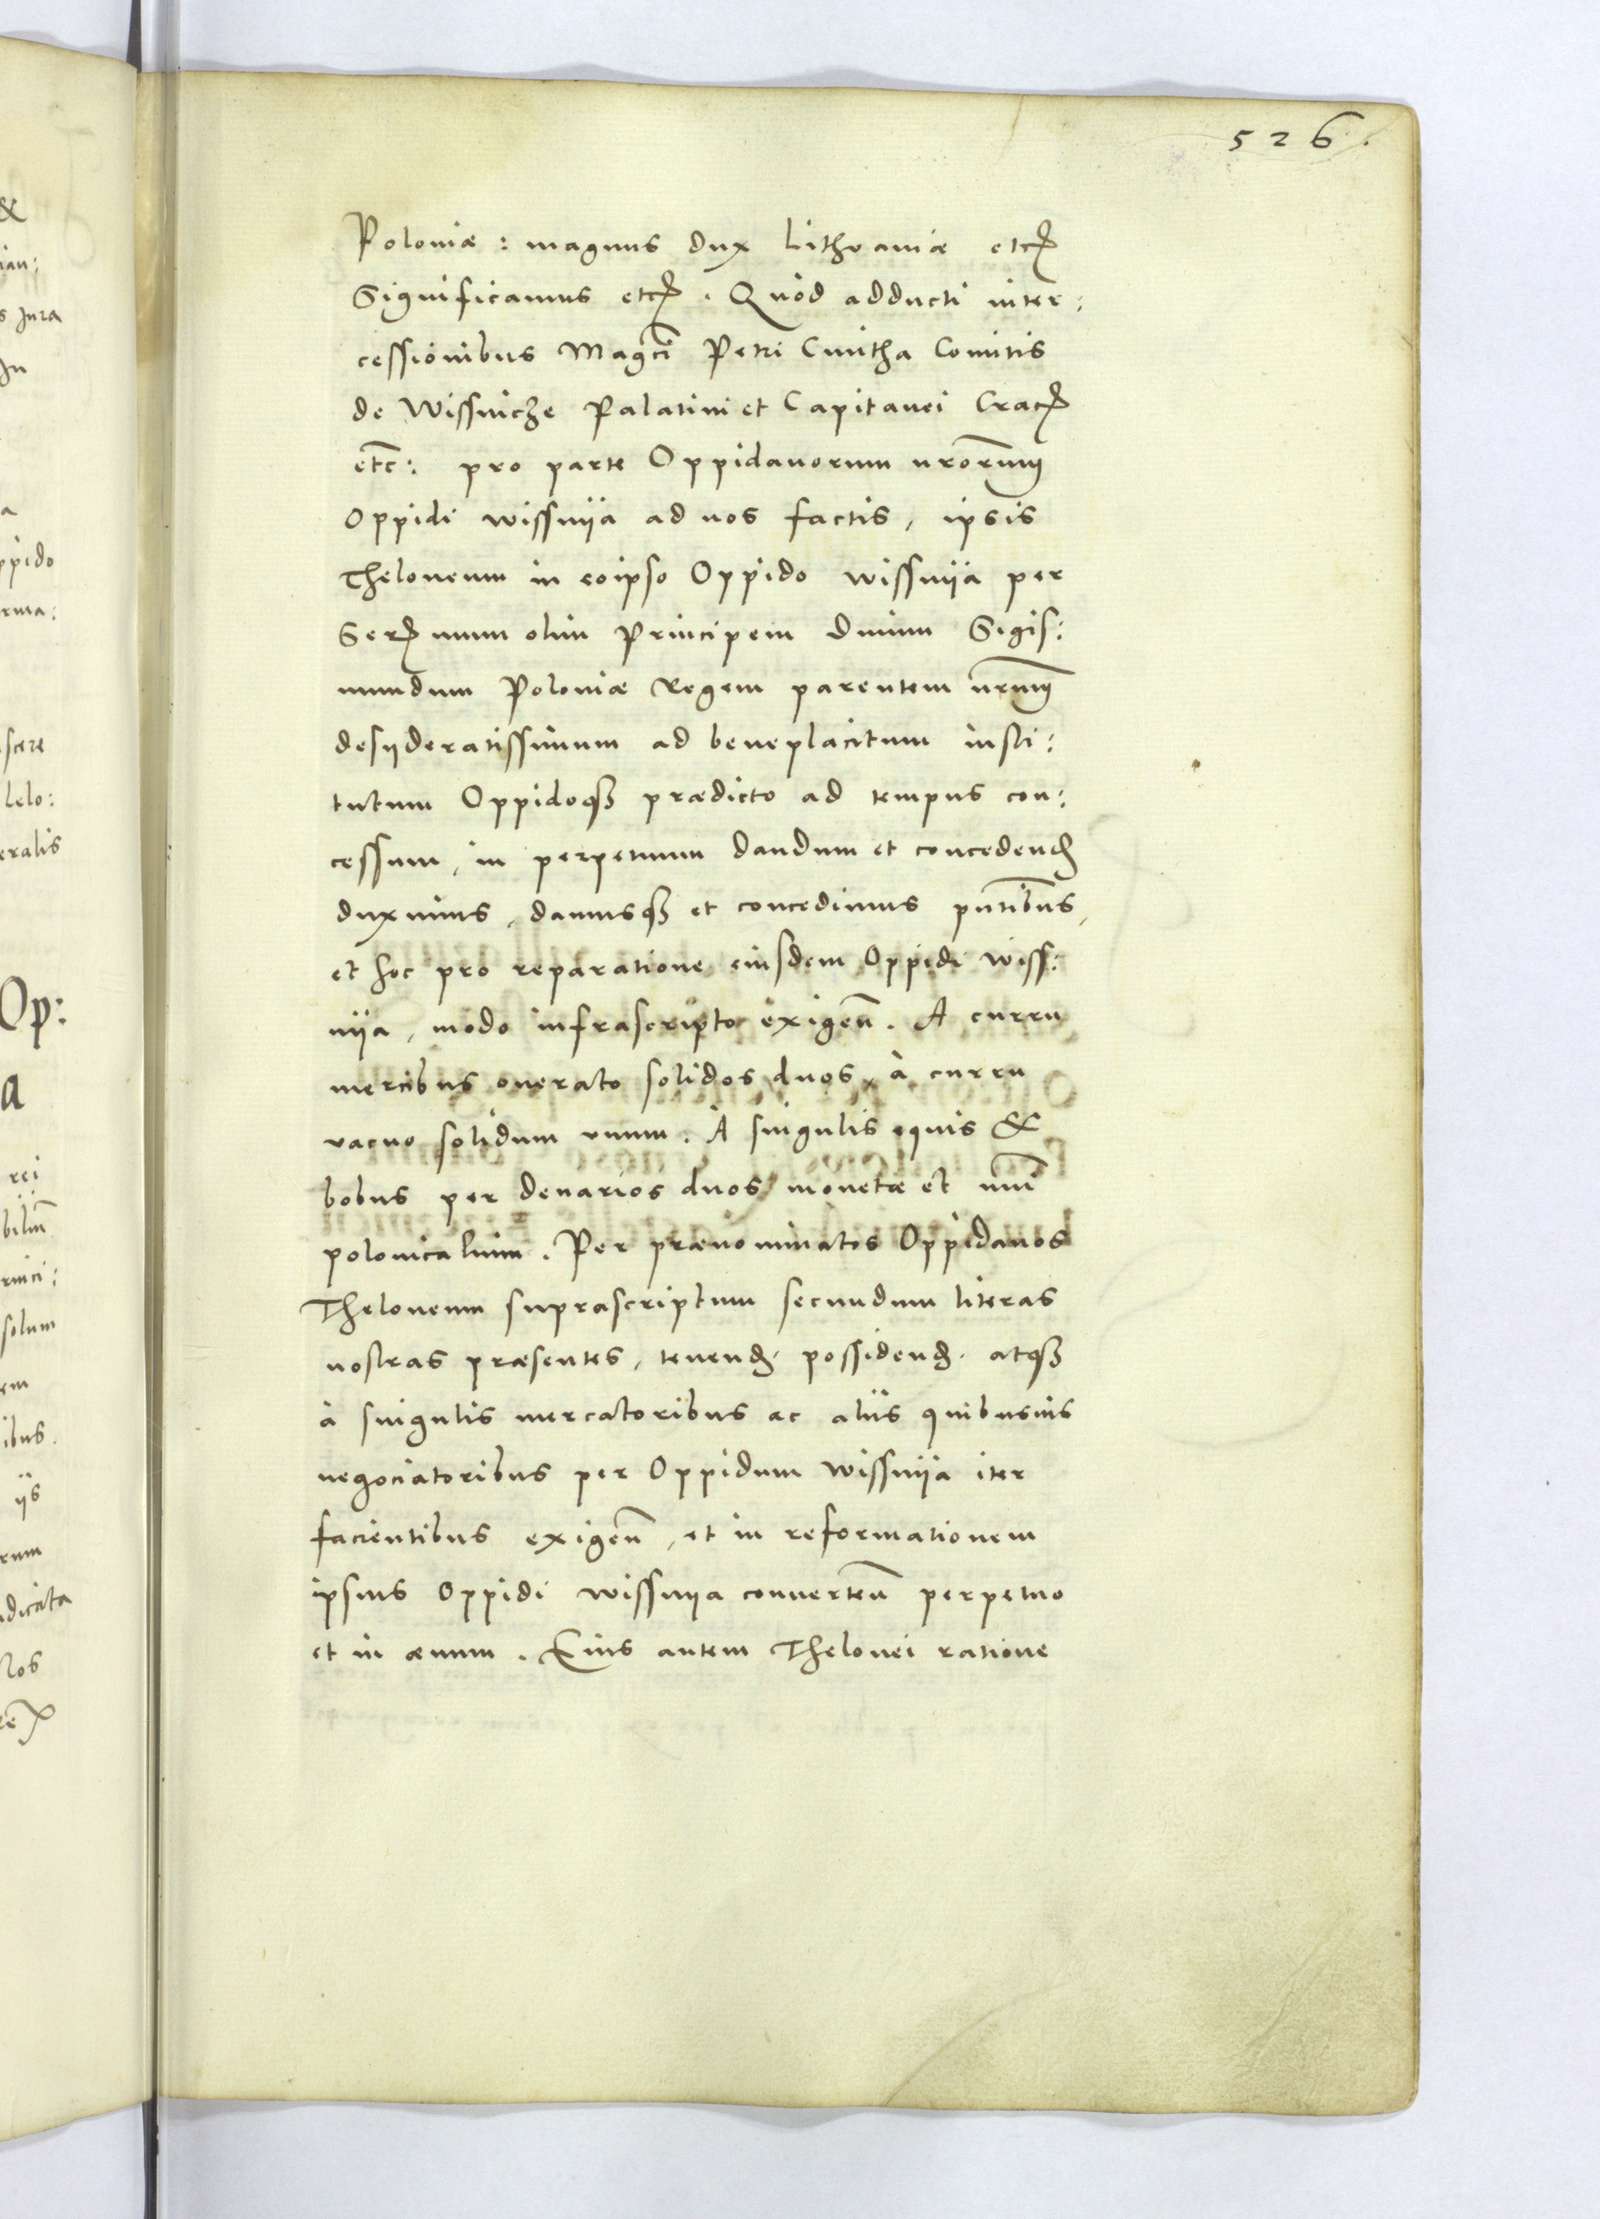 526.
Poloniæ : magnus dux Lithvaniæ etc
Significamus etc. Quòd adducti inter:
cessionibus Magci Petri Cmitha Comitis
de Wissnicze Palatini et Capitanei Crac
etc: pro parte Oppidanorum nrorum
Oppidi wissnija ad nos factis, ipsis
Theloneum in eoipso Oppido wissnija per
Sermum olim Principem Dnum Sigis:
mundum Poloniæ Regem parentem nrum
desijderatissimum ad beneplacitum insti:
tutum Oppidoqꝫ prædicto ad tempus con:
cessum, in perpetuum dandum et concedend
duximus, damusqꝫ et concedimus pntibus,
et hoc pro reparatione eiusdem Oppidi wiss:
nija, modo infrascripto exigen̄. A curru
mercibus onerato solidos duos, à curru
vacuo solidum vnum. À singulis equis &
bobus per denarios duos monetæ et nūi
polonicalium. Per prænominatos Oppidanos
Theloneum suprascriptum secundum literas
nostras præsentes, tenend. possidend. atqꝫ
à singulis mercatoribus ac aliis quibusuis
negociatoribus per Oppidum wissnija iter
facientibus exigen̄, et in reformationem
ipsius Oppidi wissnija conuerten̄ perpetuo
et in æuum. Eius autem Thelonei ratione